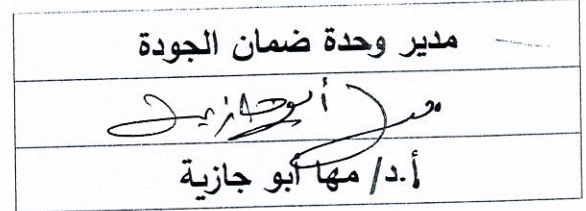 مدير وحدة ضمان الجودة
مها أبو جازية
أ.د/ مها أبو جازية